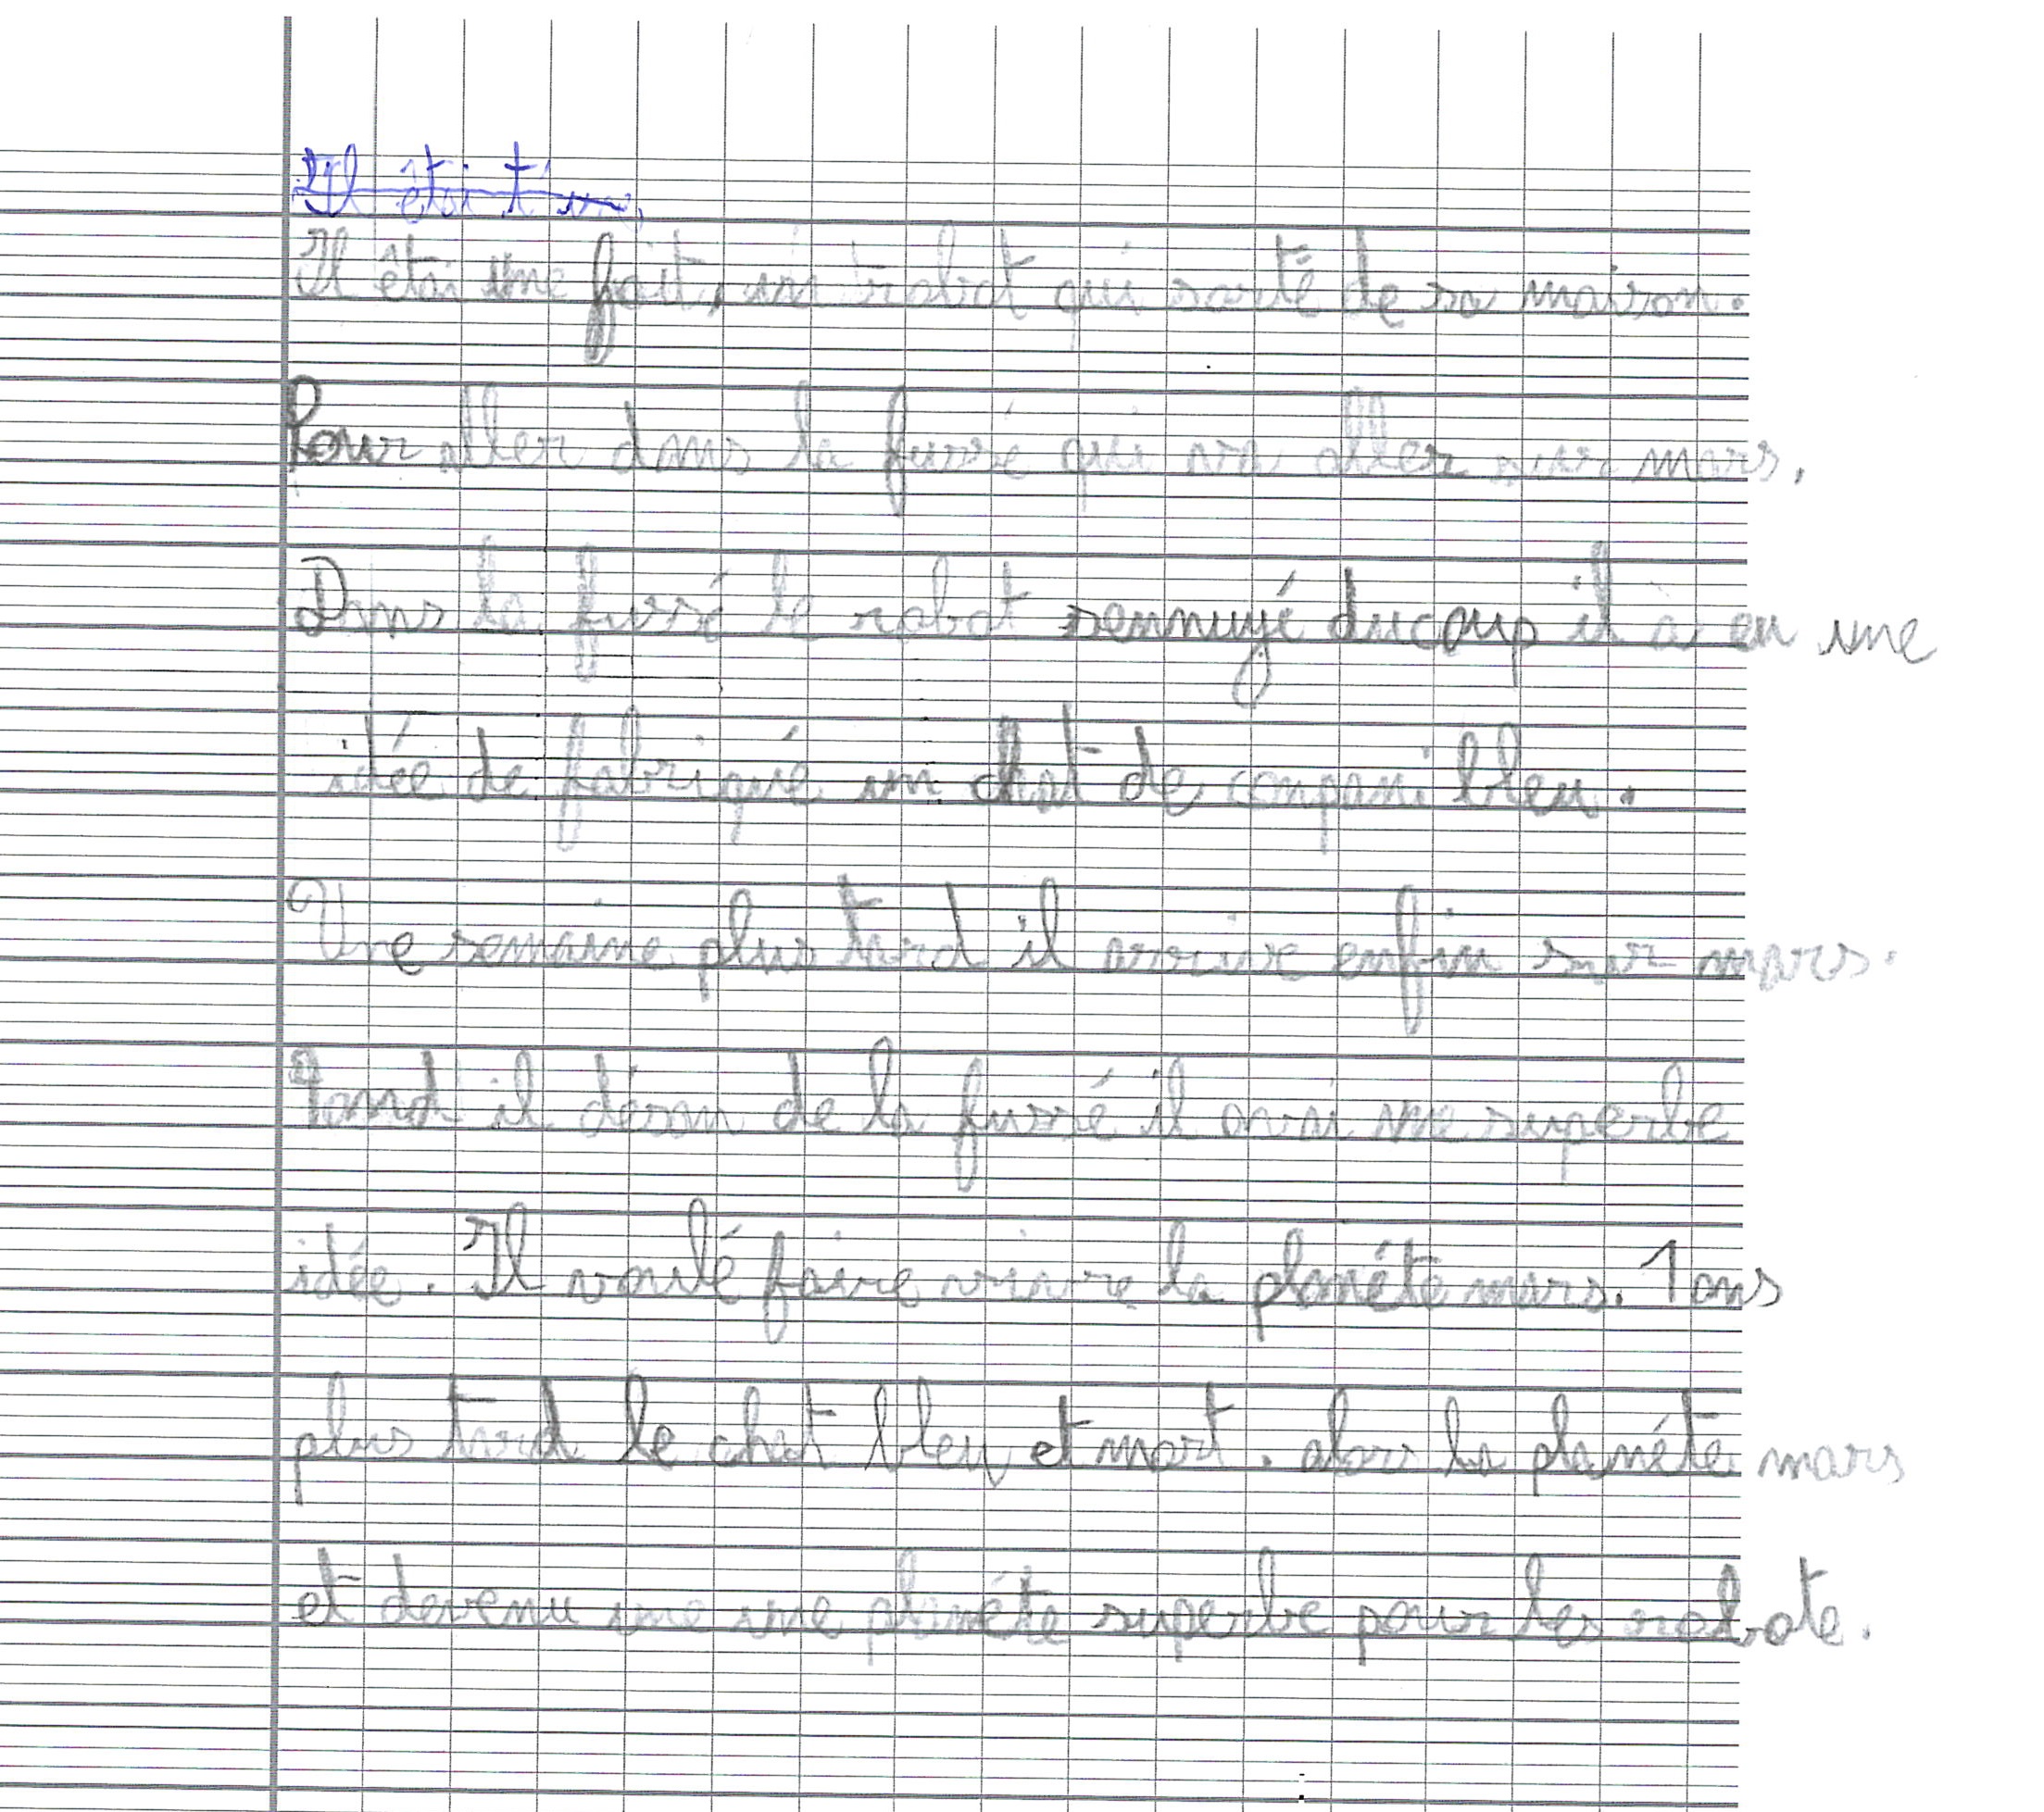 Il étoi t un,
Il étoi une foit, un robot qui sorté de sa maison.
Pour aller dans la fussé qui va aller sur mars.
Dans la fussé le robot sennuyé ducoup il a eu une
idée de fabriqué un chat de conpani bleu.
Une semaine plus tard il arrive enfin sur mars.
il désan de la fussé il avai une superbe
idée. Il voulé faire vivre la planéte mars. 1 ans
plus tard le chat bleu et mort. alors la planéte mars
et devenu une une planéte superbe pour les robote.